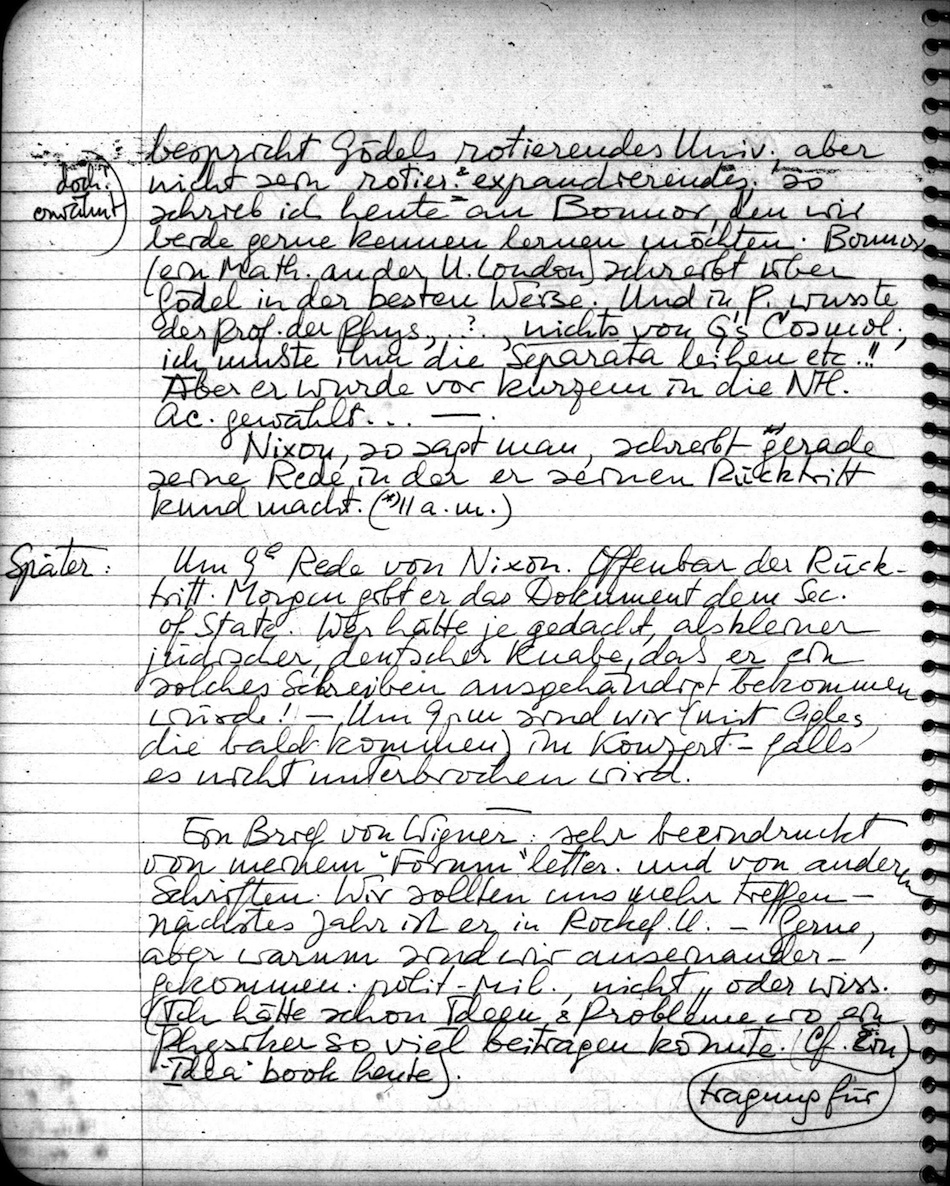 bespricht Gödels rotierendes Univ., aber
doch!
erwähnt
nicht sein rotier. & expandierendes. So
schrieb ich heute an Bonnor, den wir
beide gerne kennen lernen möchten. Bonnor
(ein Math. an der U. London) schreibt über
Gödel in der besten Weise. Und in P. wusste
der Prof. der Phys., .. ? .., nichts von G's Cosmol.;
ich musste ihm die Separata leihen etc..!!
Aber er wurde vor kurzem in die Ntl.
Ac. gewählt... —.
Nixon, so sagt man, schreibt *gerade
seine Rede, in der er seinen Rücktritt
kund macht. (*)11 a.m.)
Später:
Um 9h Rede von Nixon. Offenbar der Rück-
tritt. Morgen gibt er das Dokument dem Sec.
of State. Wer hätte je gedacht, als kleiner
jüdischer, deutscher Knabe, das er ein
solches Schreiben ausgehändigt bekommen
würde! — Um 9 pm sind wir (mit
die bald kommen) im Konzert - falls
es nicht unterbrochen wird.
Ein Brief von Wigner: sehr beeindruckt
von meinem "Forum" letter. und von anderen
Schriften. Wir sollten uns mehr treffen —
nächstes Jahr ist er in Rockef. U. — Gerne,
aber warum sind wir auseinander-
gekommen: polit-mil., nicht „ oder wiss.
(Ich hätte schon Ideen & Probleme wo ein
Physiker so viel beitragen könnte. (Cf. Ein
tragung für
"Idea" book heute).